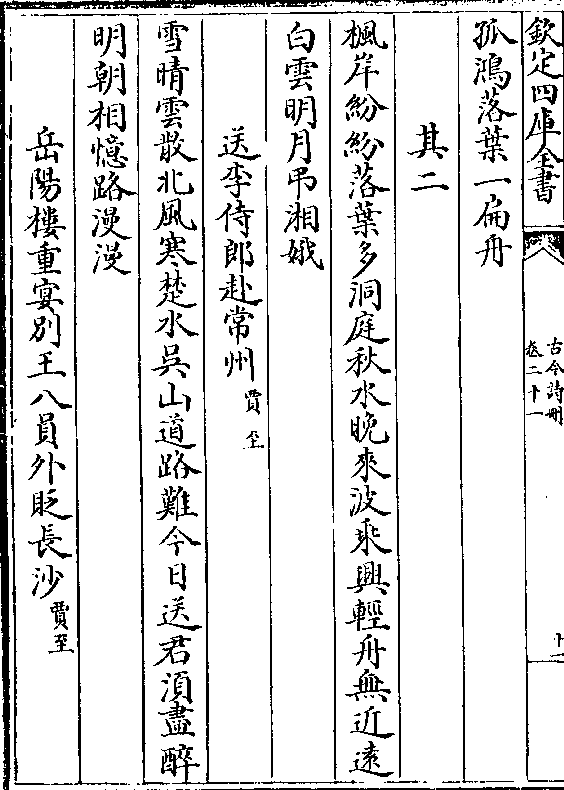 欽定四庫全書
古今詩刪
卷二十一
十一
孤鴻落葉一扁舟
其二
楓岸紛紛落葉多洞庭秋水晚來波乘興輕舟無近遠
白雲明月弔湘娥
送李侍郎赴常州 賈至
雪晴雲散北風寒楚水吳山道路難今日送君須盡醉
明朝相憶路漫漫
岳陽樓重宴别王八員外貶長沙 賈至